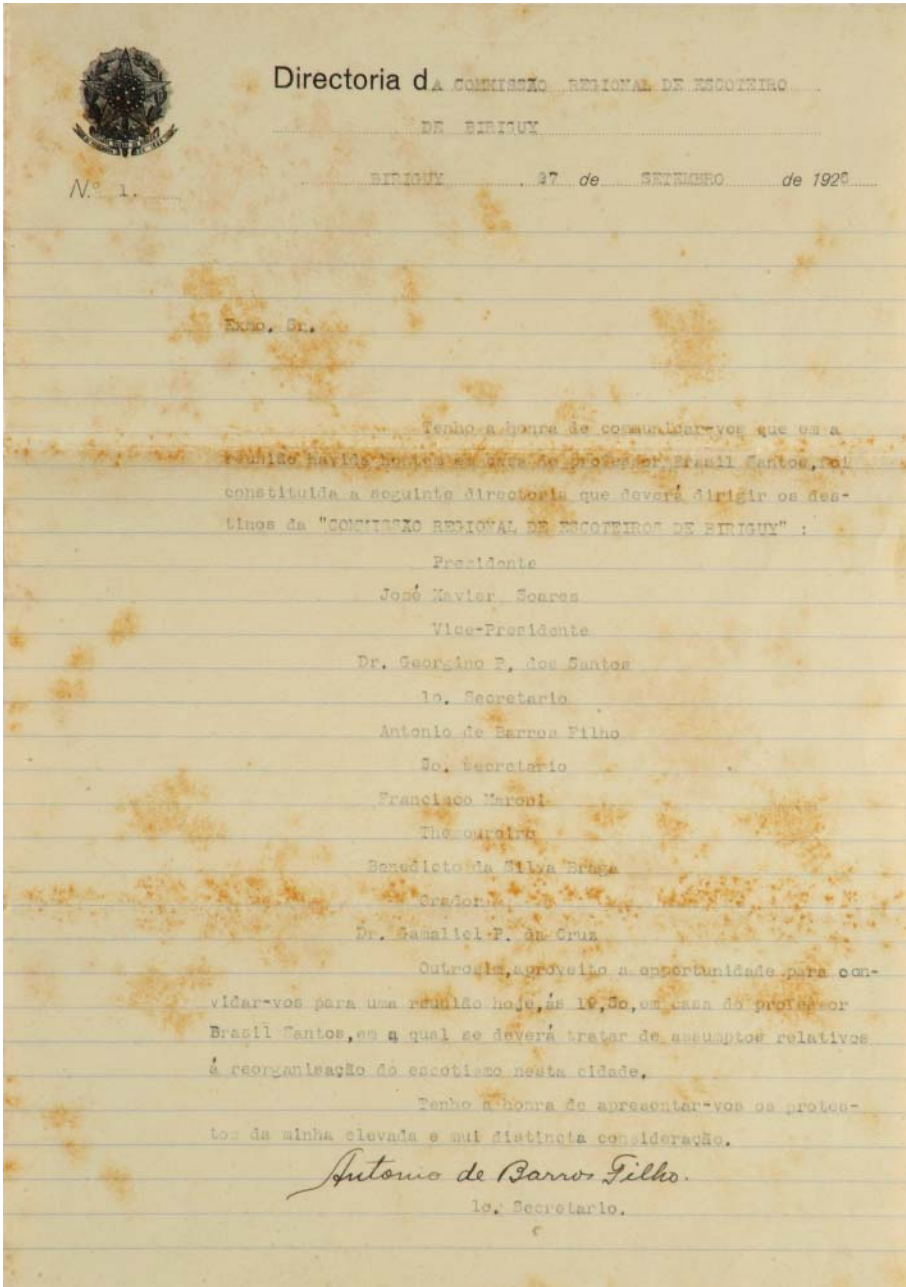 Directoria dA COMMISSÃO REGIONAL DE ESCOTEIRO
DE BIRIGUY
N.º 1.
BIRIGUY, 27 de SETEMBRO de 1926
Exmo. Sr.
Tenho a honra de communicar-vos que em a
reunião havida hontem em casa do professor Brasil Santos, foi
constituida a seguinte directoria que deverá dirigir os des-
tinos da "COMMISSÃO REGIONAL DE ESCOTEIROS DE BIRIGUY" :
Presidente
José Xavier Soares
Vice-Presidente
Dr. Georgino P. dos Santos
1o. Secretario
Antonio de Barros Filho
2o. secretario
Francisco Maroni
Thesoureiro
Benedicto da Silva Braga
Orador
Dr. Gamaliel P. da Cruz
Outrosim,aproveito a opportunidade para con-
vidar-vos para uma reunião hoje,ás 19,30,em casa do professor
Brasil Santos,em a qual se deverá tratar de assumptos relativos
á reorganisação do escotismo nesta cidade.
Tenho a honra de apresentar-vos os protes-
tos da minha elevada e mui distincta consideração.
Antonio de Barros Filho.
1o. Secretario.